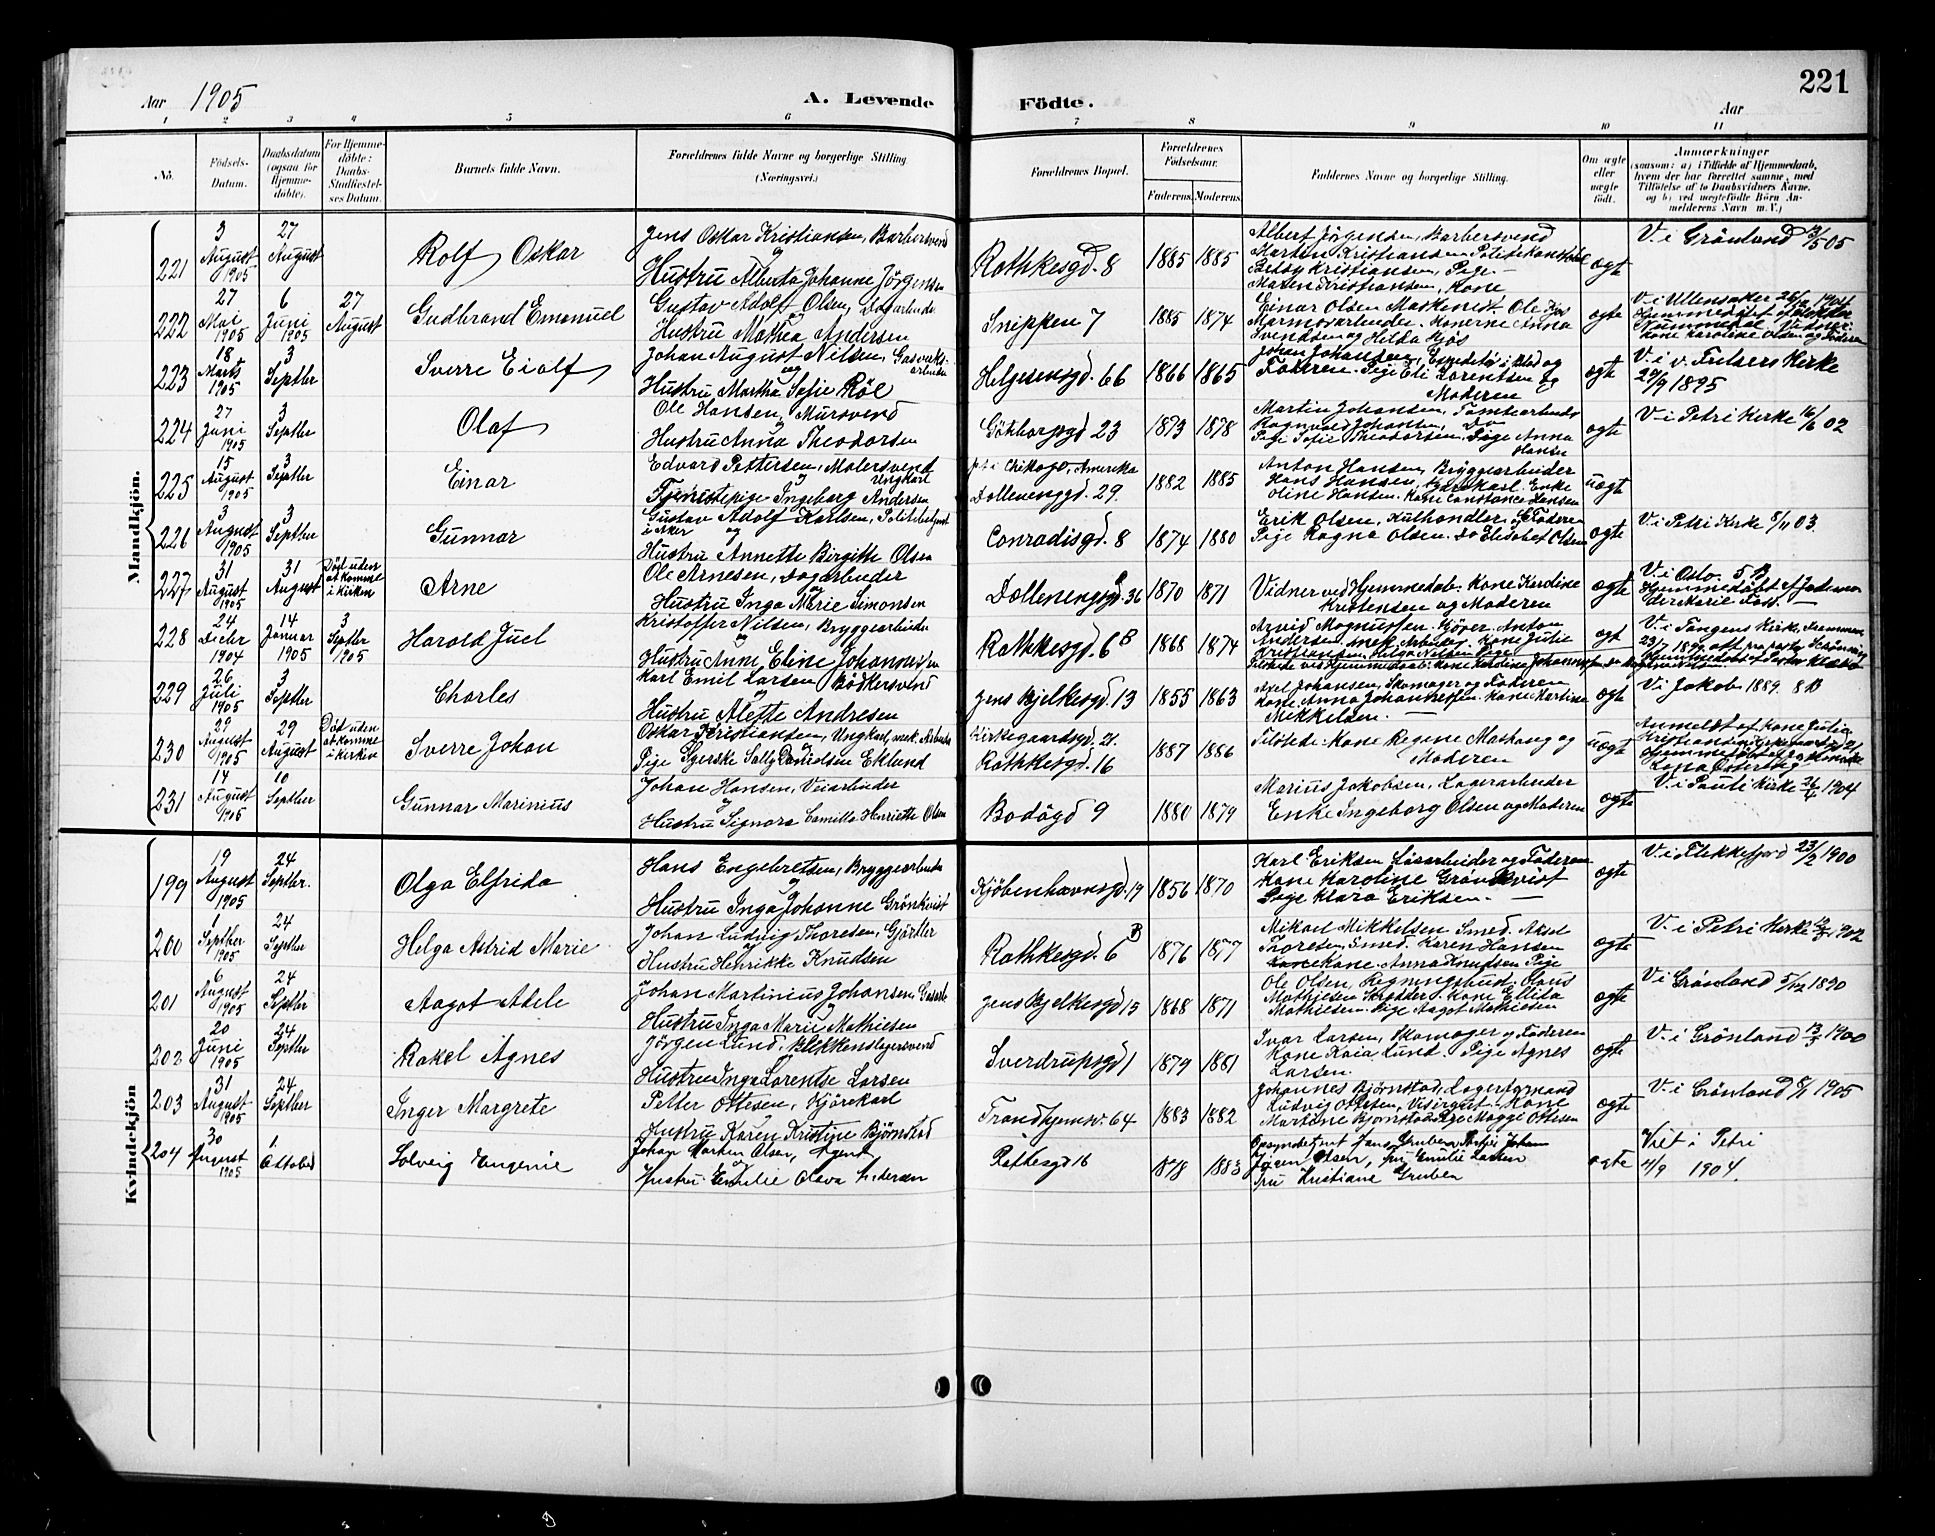 221
Aar 1905
A. Levende Födte.
Aar
1 2 3 4 5 6 7 8 9 10 11
No.
Födsels-Datum.
Daabsdatum (ogsaa for Hjemme-döbte).
For Hjemme-döbte: Daabs-Stadfæstel-ses Datum.
Barnets fulde Navn.
Forældrenes fulde Navne og borgerlige Stilling. (Næringsvei.)
Forældrenes Bopæl.
Forældrenes Födselsaar.
Faderens. Moderens.
Faddernes Navne og borgerlige Stilling.
Om ægte eller uægte födt.
Anmærkninger
(saasom: a) i Tilfælde af Hjemmedaab, hvem der har forrettet samme, med Tilföielse af to Daabsvidners Navne. og b) ved uægtefödte Börn An-melderens Navn m. V.)
Mandkjön.
221 3 August 1905 27 August Rolf Oskar
Jens Oskar Kristiansen, Barbersvend og
Hustru Alberta Johanne Jörgensen
Rathkesgd. 8 1885 1885
Albert Jörgensen, Barbersvend
Martin Kristiansen Politikonstbl
Betsy Kristiansen, Pige
Maren Kristiansen, Kone
ægte
V. i Grönland 05
222 27 Mai 1905 6 Juni 1905 27 August Gudbrand Emanuel
Gustav Adolf Olsen, Dagarbeider
Hustru Mathea Andersen
Snippen 7 1885 1874
Einar Olsen Maskenist. Ole
Marmorarbeider. Konerne Anna
Svendsen og Hilda
ægte
V. i Ullensaker 1904
Hjemmedöbt af
Kone Karoline Olsen og Faderen
223 18 Marts 1905 3 Septber Sverre Eiolf
Johan August Nilsen, Gasverks-arbeider
og
Hustru Martha Sofie Röl
Helgesensgd. 66 1866 1865
Johan Johansen, og
Faderen. Pige Eli Lorentsen og
Moderen
ægte
V. i v. Frelsers Kirke
29/9 1895
224 27 Juni 1905 3 Septber Olaf
Ole Hansen, Mursvend
Hustru Anna Theodorsen
Götborgsgd 23 1873 1878
Martin Johansen, Tomtearbeider
Ragnvald Johansen, Do
Pige Sofie Theodorsen. Pige Anna
Hansen
ægte
V. i Petri Kirke 16/6 02
225 15 August 1905 3 Septber Einar
Edvard Pettersen, Malersvend
Ungkarl
og
Tjenestepige Ingeborg Andersen
pt. i Chikago, Amerika
Dælenenggd. 29. 1882 1885
Anton Hansen, Bryggearbeider
Hans Hansen, Enke
Oline Hansen. Kone Constance Hansen
uægte
226 3 August 1905 3 Septber Gunnar
Gustav Adolf Karlsen, Politibetjent
i Aker og
Hustru Annette Birgithe Olsen
Conradisgd. 8 1874 1880
Erik Olsen, Kulhandler og Faderen
Pige Ragna Olsen. Do Elisabet Olsen
ægte
V. i Petri Kirke 8/11 03.
227 31 August 1905 31 August Död uden at komme i Kirken Arne
Ole Arnesen, Dagarbeider
og
Hustru Inga Marie Simonsen
Dælenenggd. 36 1870 1871
Vidner ved Hjemmedåb. Kone Kardine
Kristensen og Moderen
ægte
V. i Oslo.
Hjemmedöbt af Jordemor
228 24 Decbr 1904 14 Januar 1905 3 Septbr 1905 Harald Juel
Kristoffer Nilsen, Bryggearbeider
og
Hustru Anne Eline Johannesen
Rathkesgd. 6B 1868 1874
Arvid Magnussen. Anton
Andersen mek. Arbeider. Kone Julie
Kristiansen. Helga Nilsen Pige
Tilstede ved Hjemmedaab: Kone
ægt
V. i Tangens Kirk, Drammen
1899
229 26 Juli 1905 3 Septber Charles
Karl Emil Larsen Bödkersvend
og
Hustru Alette Andresen
Jens Bjelkesgd. 13 1855 1863
Axel Johansen, Skomager og Faderen
Kone Anna Johannessen. Kone Martine
Mikkelsen.
ægte
V. i Jakob 1889.
230 29 August 1905 29 August Död uden at komme i Kirken Sverre Johan
Oskar Kristiansen, Ungkarl, mek. Arbeider
og
Pige Syerske Sally Danielsen Eklund
Kirkegaardsgd. 21.
Rathkesgd. 16 1887 1886
Tilstede: Kone Regine og
Moderen
uægte
Anmeldt af Kone Julia
Kristiansen, Kirkegaardsgd 21
231 14 August 1905 10 Septber Gunnar Marinius
Johan Hansen, Veiarbeider
og
Hustru Signora Camilla Henriette Olsen
Bodögd 9 1880 1879
Marius Jakobsen, Lagerarbeider
Enke Ingeborg Olsen og Moderen
ægte
V. i Pauli Kirke 1904
Kvindekjön
199 19 August 1905 24 Septber. Olga Elfrida
Hans Engebretsen, Bryggearbeider
og
Hustru Inga Johanne Grönkvist
Kjöbenhavnsgd. 19 1856 1870
Karl Eriksen Lösarbeider og Faderen
Kone Karoline Grönkvist
Pige Klara Eriksen.
ægte
V. i Flekkefjord 23/2 1900
200 1 Septber 1905 24 Septbr Helga Astrid Marie
Johan Ludvig Thoresen, Gjörtler
og
Hustru Henrikke Knudsen
Rathkesgd. 6 B 1876 1877
Mikael Mikkelsen Smed. Aksel
Thoresen, Smed. Karen Hansen
Kone. Anna Knudsen Pige
ægte
V. i Petri Kirke 1902
201 6 August 1905 24 Septbr Aagot Adele
Johan Martinius Johansen
Hustru Inga Marie Mathiesen
Jens Bjelkesgd 15 1868 1871
Ole Olsen, Olaus
Mathiesen Skrædder. Kone Ellida
Mathiesen. Pige Aagot Mathiesen
ægte
V. i Grönland 5/12 1890
202 20 Juni 1905 24 Septber Rakel Agnes
Jörgen Lund, Blikkenslagersvend
Hustru Inga Lorentse Larsen
Sverdrupsgd 1 1879 1881
Ivar Larsen, Skomager og Faderen
Kone Kaia Lund. Pige Agnes
Larsen.
ægte
V. i Grönland 1900
203 31 August 1905 24 Septber Inger Margrete
Petter Ottesen, Kjörekarl
Hustru Karen Kristine Björnstad
Trondhjemsv. 64 1883 1882
Johannes Björnstad, Lagerformand
Ludvig Ottesen, Visergut. Kone
Martine Björnstad. Pige Magge Ottesen
ægte
V. i Grönland 8/1 1905
204 30 August 1905 1. Oktober Solveig Eugenie
Johan Morten Olsen, Agent
og
Hustru Emilie Olava Andersen
Rathesgd 16 1878 1883
Opsynsbetjent Jens Gruben,
Olsen, fru Emilie Larsen
fru Kristiane Gruben
ægte
Viet i Petri
1904.